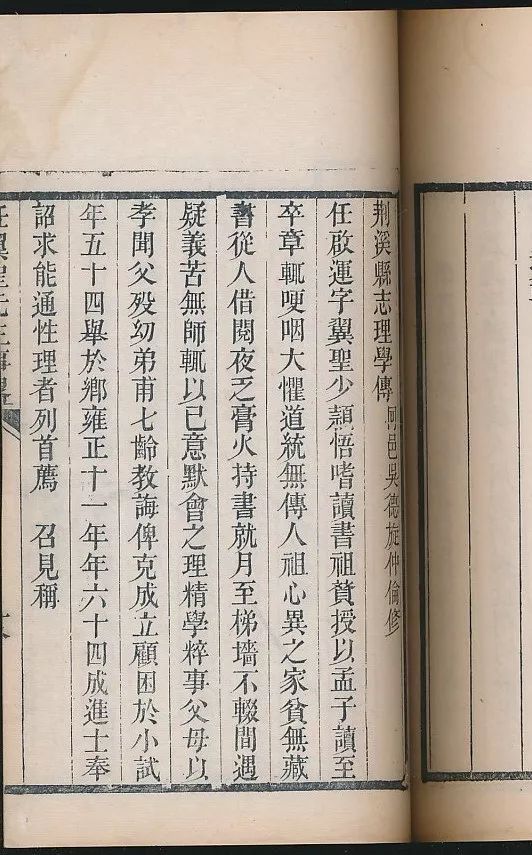 荆溪縣志理學傳 同邑吳德旋仲倫修
任啟運字翼聖少穎悟嗜讀書祖贄授以孟子讀至
卒章輒哽咽大懼道統無傳人祖心異之家貧無藏
書從人借閱夜乏膏火持書就月至梯墻不輟間遇
疑義苦無師輒以已意默會之理精學粹事父母以
孝聞父歿幼弟甫七齡教誨俾克成立顧困於小試
年五十四舉於鄉雍正十一年年六十四成進士奉
詔求能通性理者列首薦 召見稱